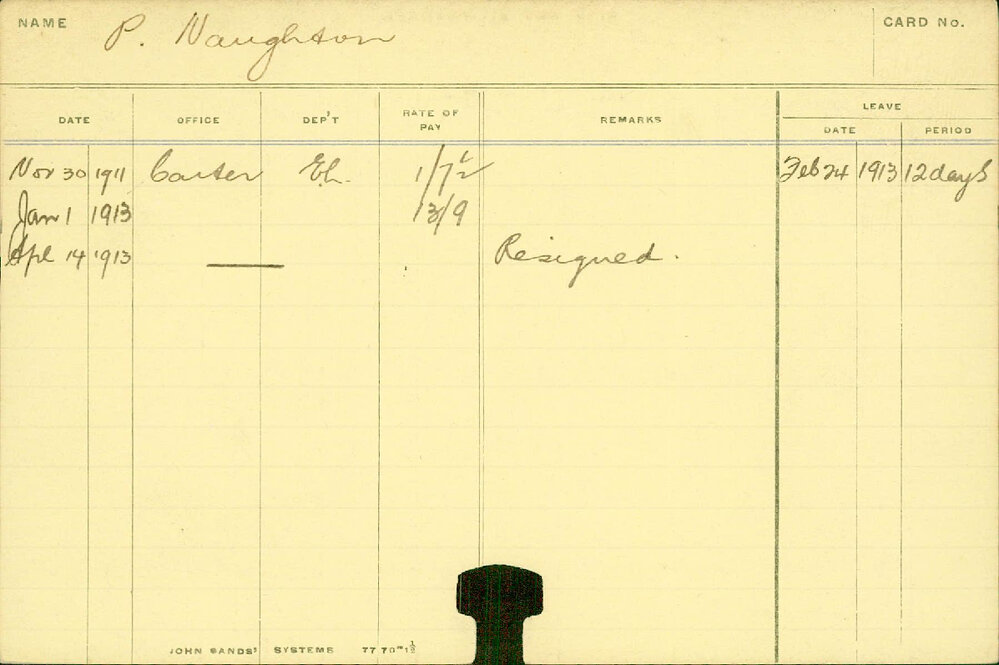 NAME P. Naughton CARD No.
DATE OFFICE DEP'T RATE OF PAY REMARKS LEAVE
DATE PERIOD
Nov 30 1911 Carter 1/7½ Feb 24 1913 12 days
Jan 1 1913 13/9
Apl 14 1913 — Resigned.
JOHN SANDS' SYSTEMS